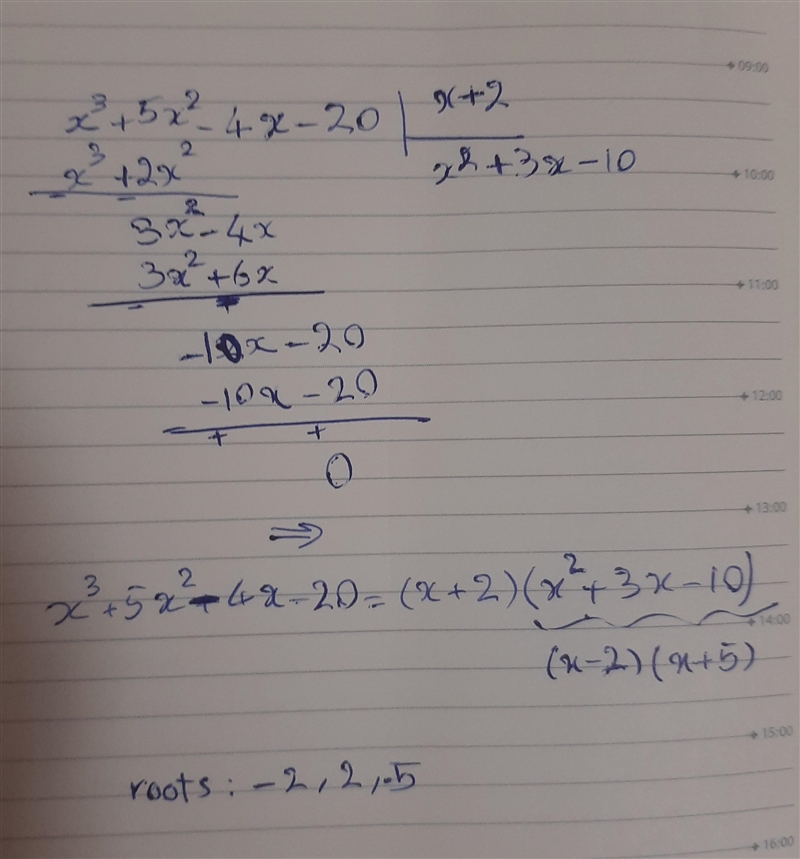 09:00
x³+5x²-4x-20 | x+2
x³+2x² x²+3x-10
10:00
- -
3x²-4x
3x²+6x
11:00
- +
-10x-20
-10x-20
12:00
+ +
0
13:00
⇒
x³+5x²-4x-20=(x+2)(x²+3x-10)
14:00
(x-2)(x+5)
15:00
roots: -2, 2, -5
16:00